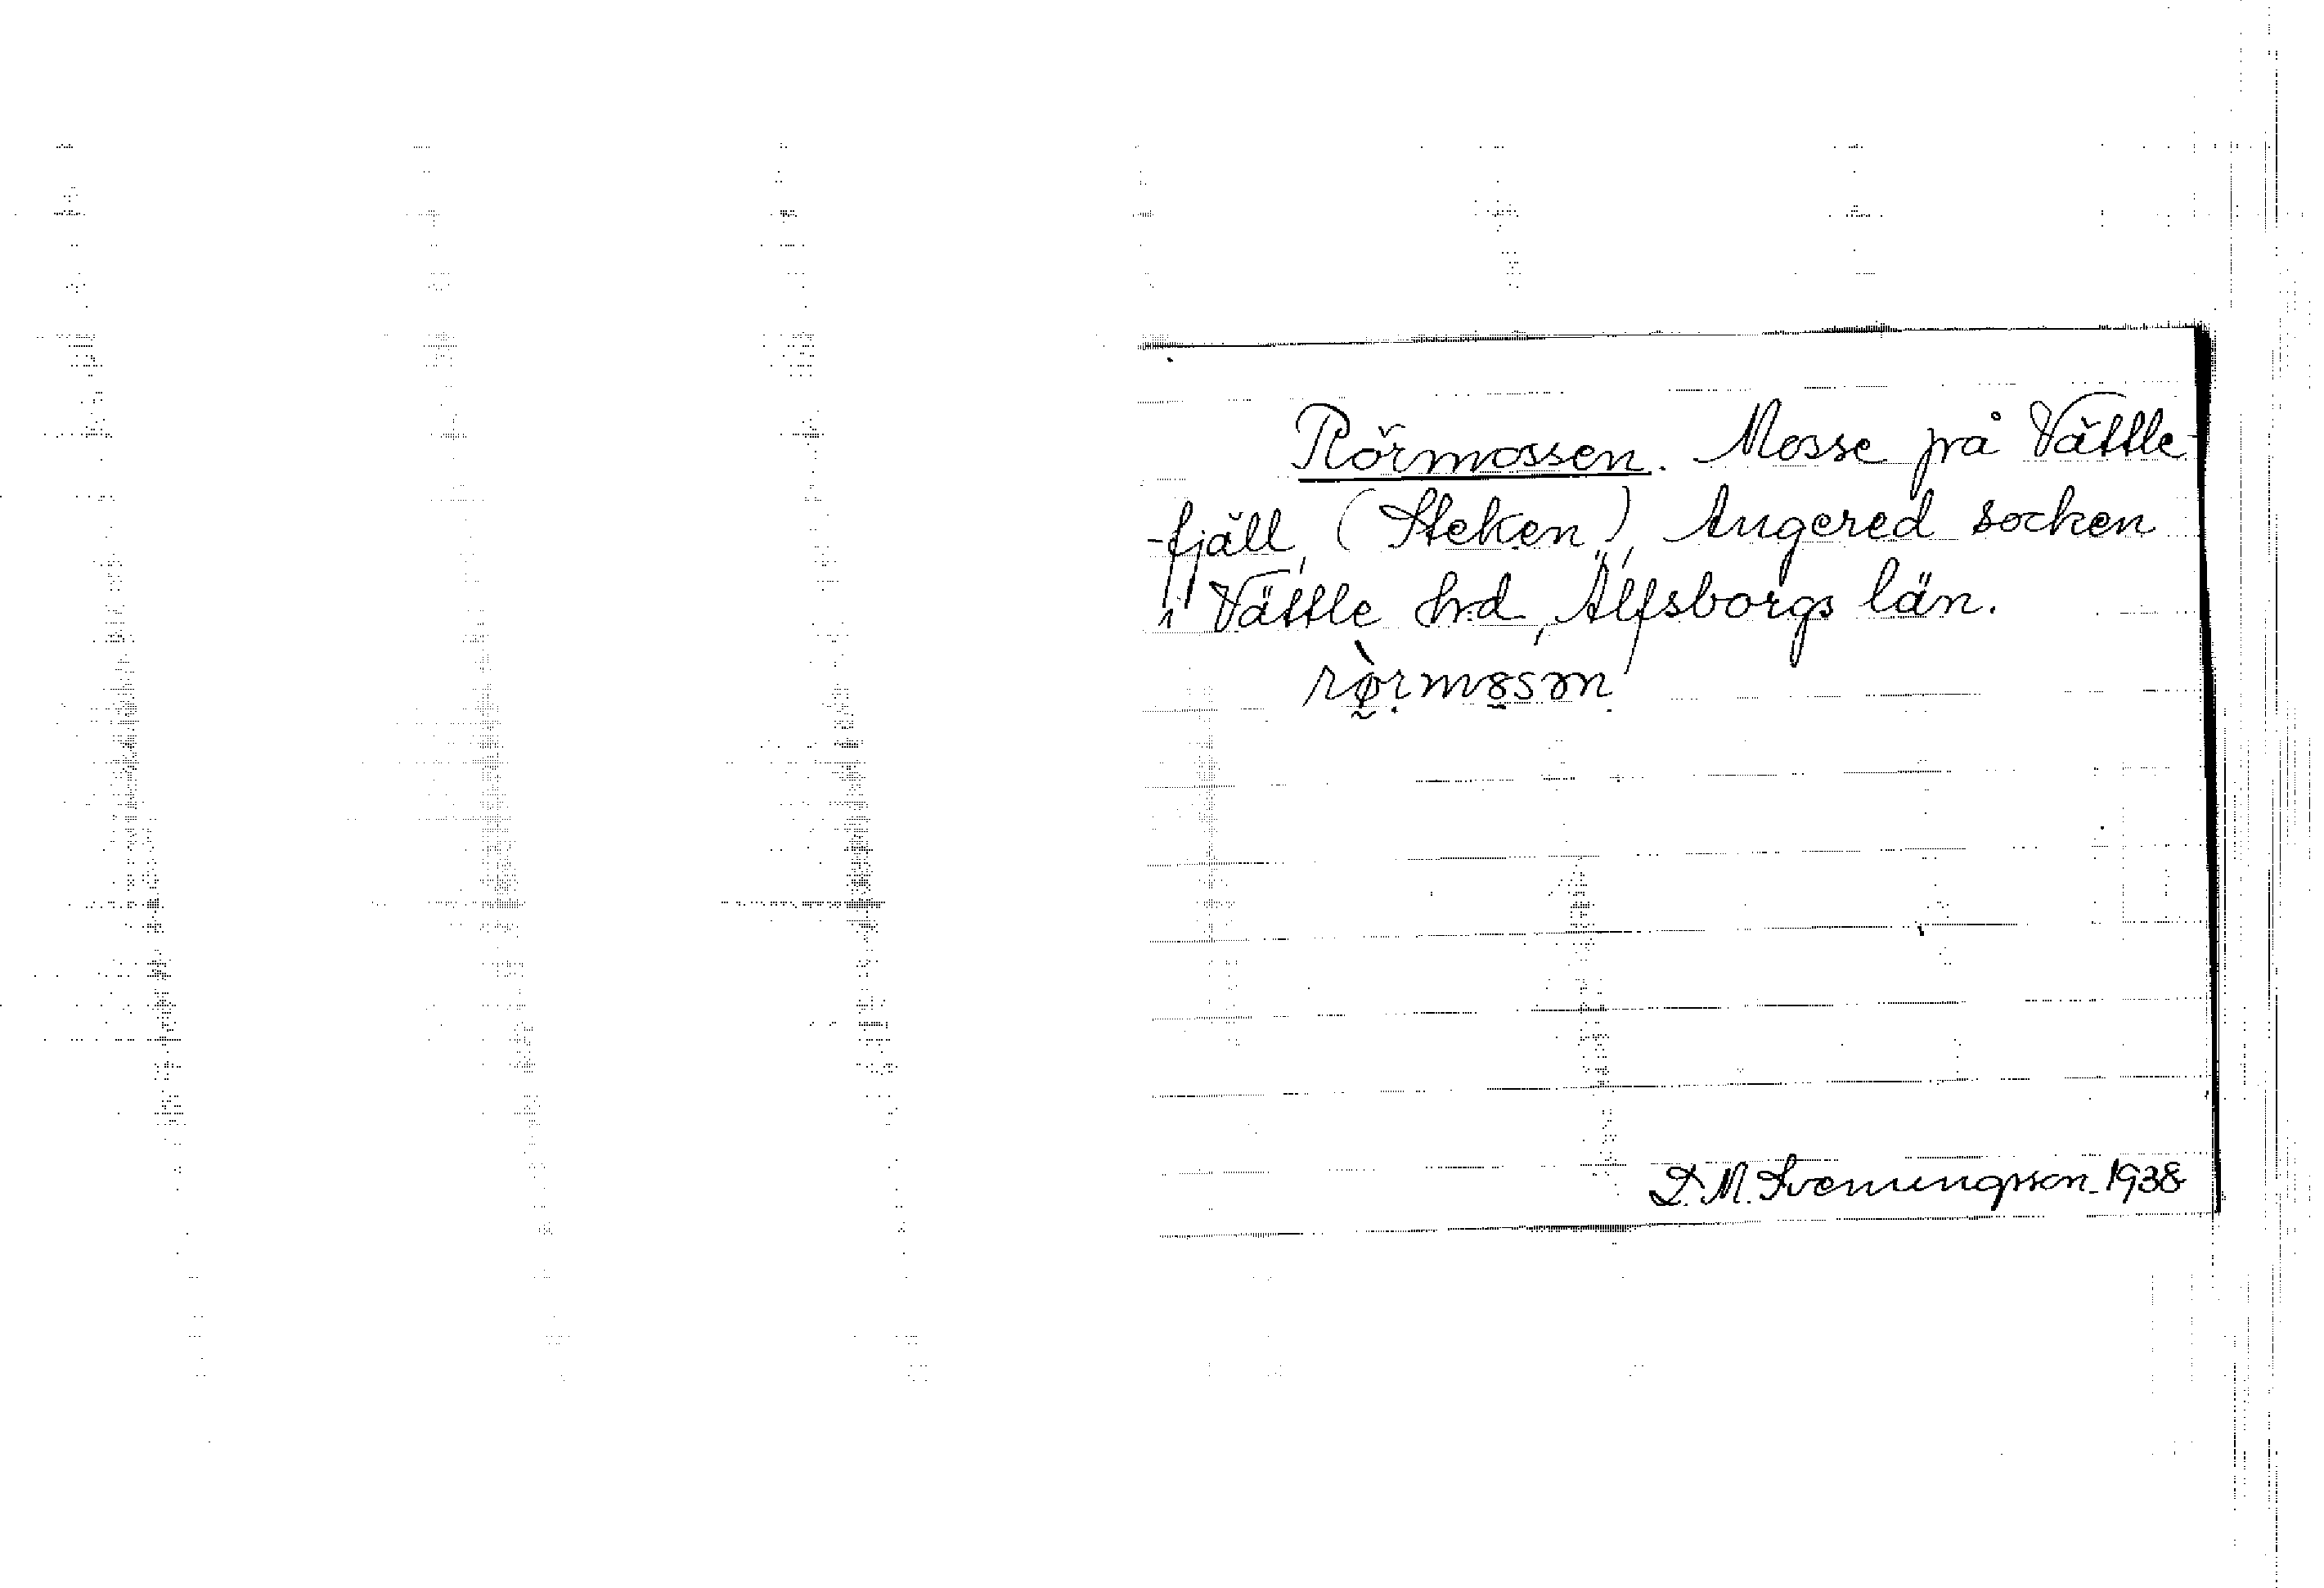 Rörmossen. Mosse på Vättle-
-fjäll, (Steken), Angered socken
i Vättle hd, Älfsborgs län.
D. M. Svenungsson. 1938